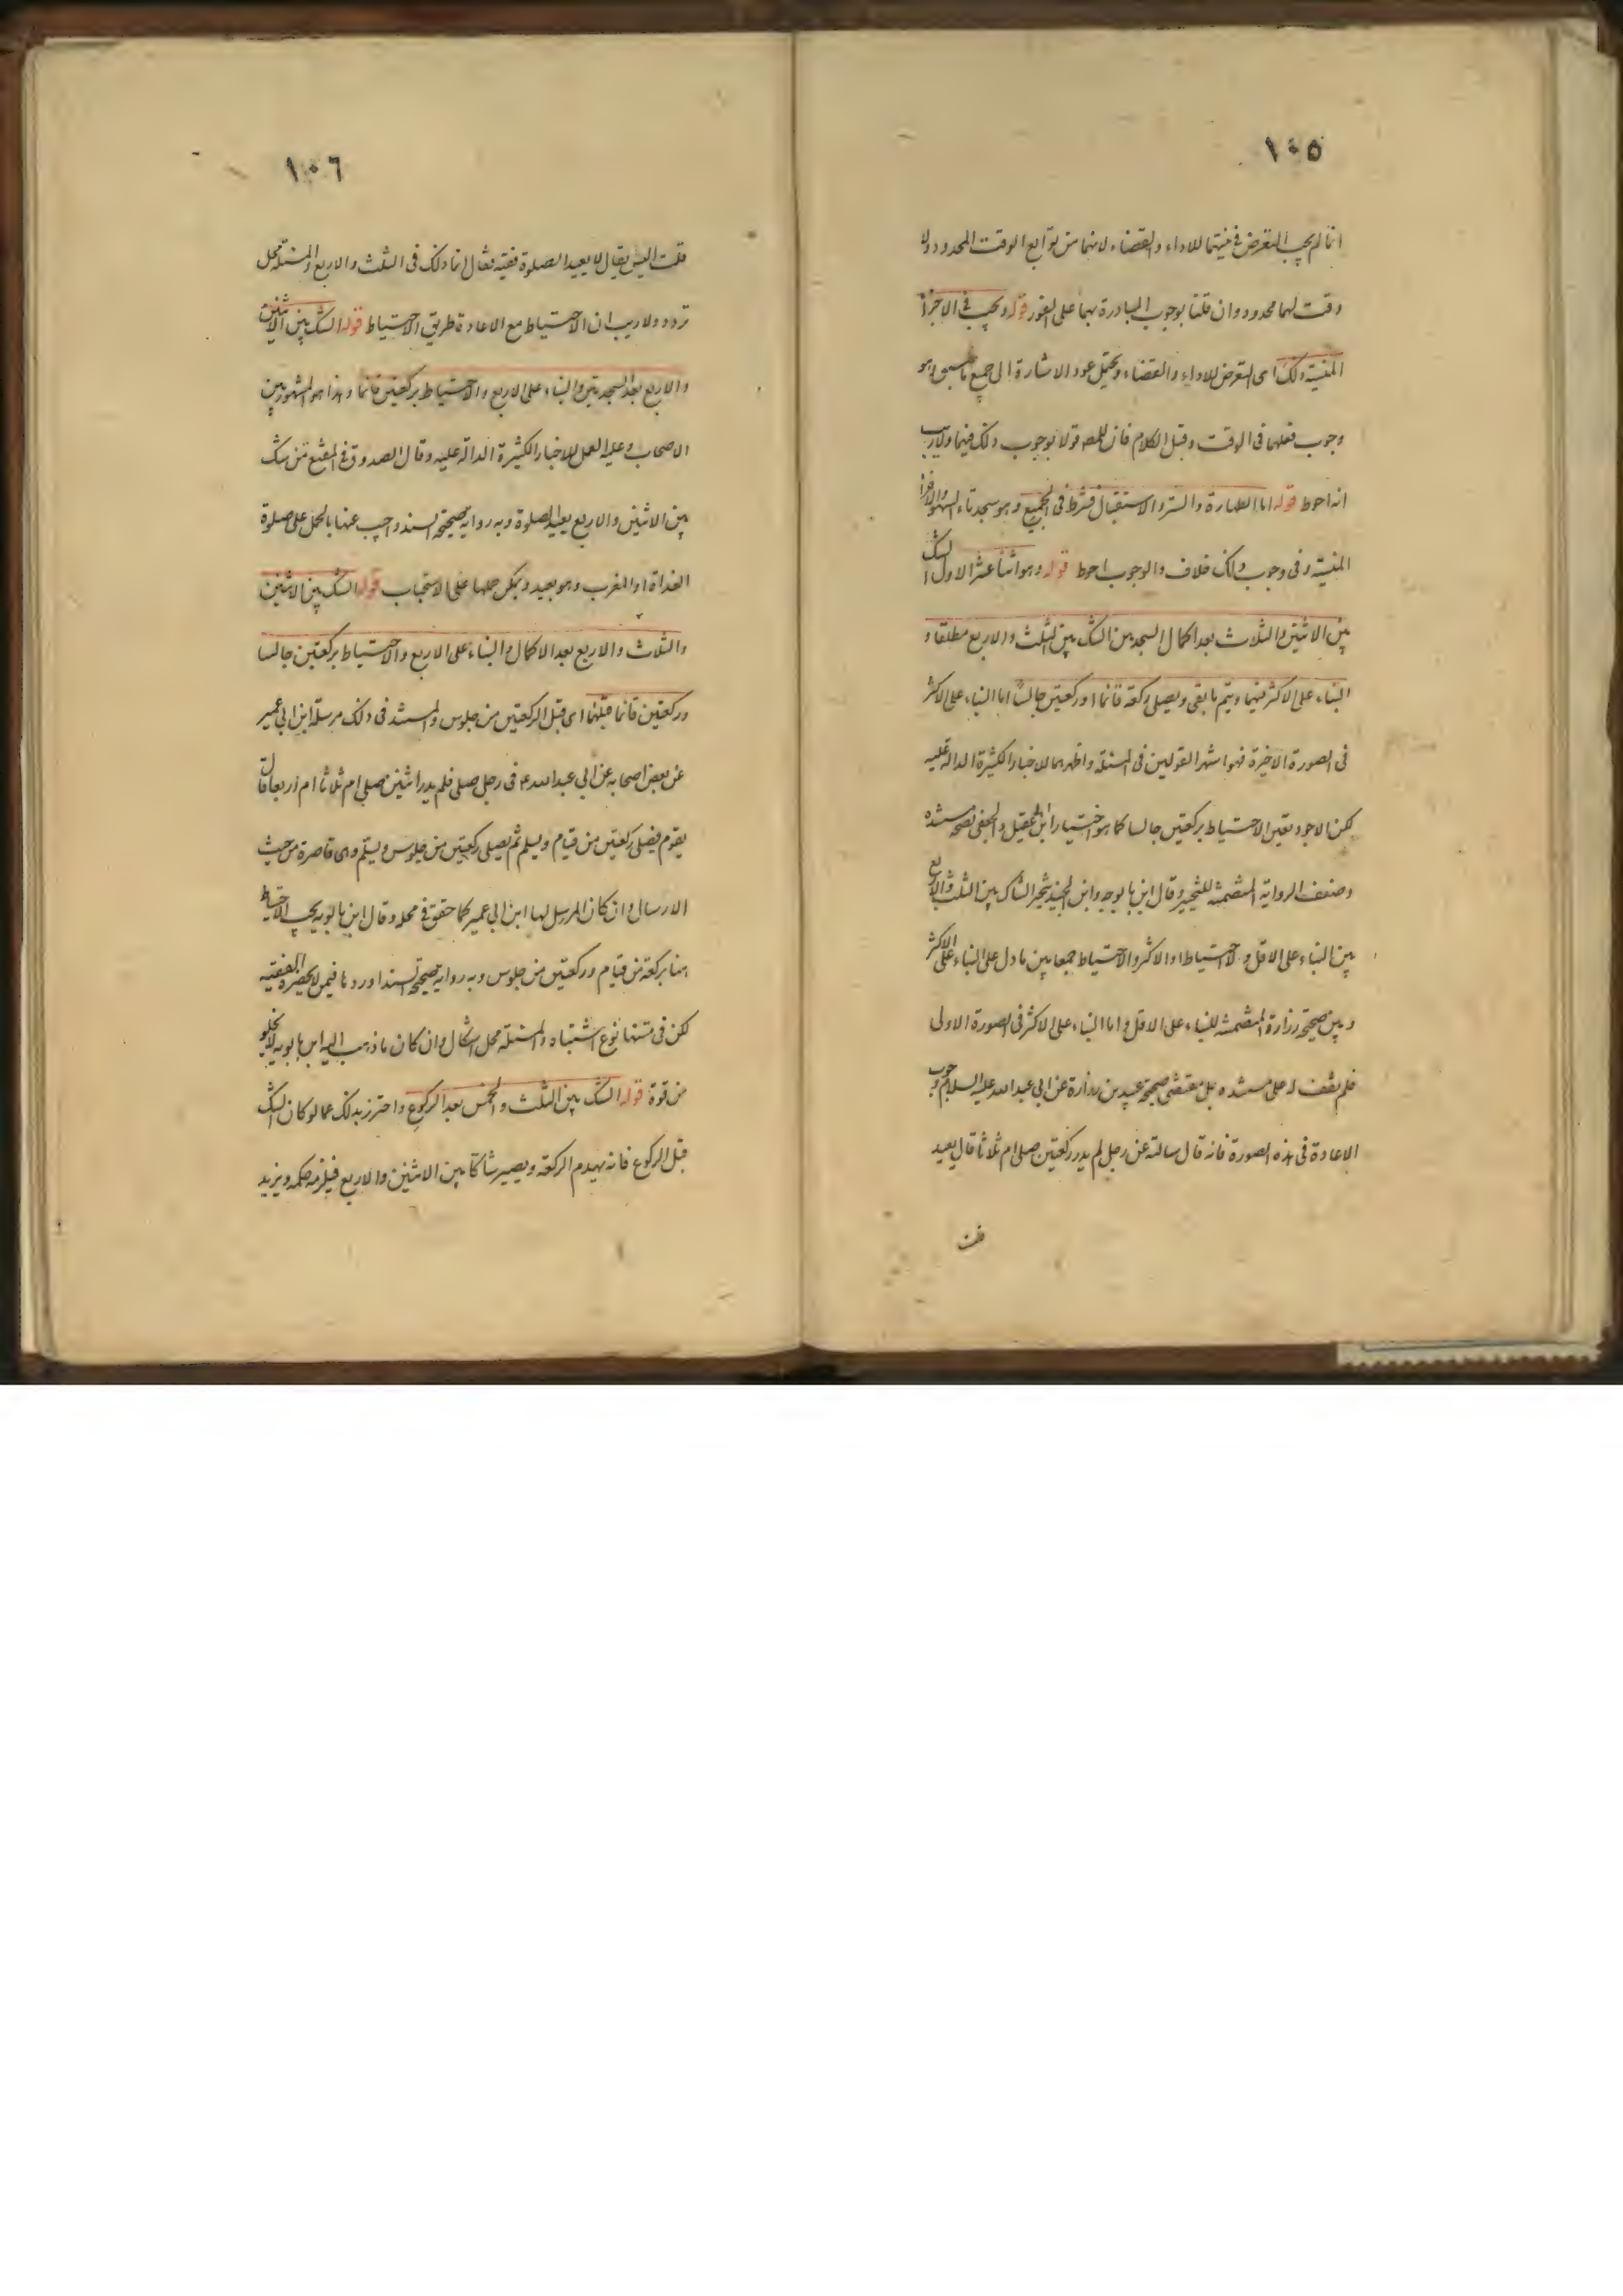 ١٠٥
انما لم يجب التعرض في نيتهما للاداء والقضاء لانهما من توابع الوقت المحدود ولا
وقت لهما محدود وان قلنا بوجوب المبادرة بهما على الفور قوله ويجب في الاجزاء
المنسية ذلك اى التعرض للاداء والقضاء ويحتمل عود الاشارة الى جميع ما سبق وهو
وجوب فعلها فى الوقت وقبل الكلام فان للمص قولا بوجوب ذلك فيهما ولا ريب
انه احوط قوله اما الطهارة والستر والاستقبال فشرط فى الجميع وهو سجدتا السهو والاجزاء
المنسية وفى وجوب ذلك خلاف والوجوب احوط قوله وهو اثنا عشر الاول الشك
بين الاثنين والثلاث بعد اكمال السجدتين الشك بين الثلث والاربع مطلقا و
البناء على الاكثر فيهما ويتم ما بقى ويصلى ركعة قائما او ركعتين جالسا اما البناء على الاكثر
فى الصورة الاخيرة فهو اشهر القولين فى المسئلة واظهرهما للاخبار الكثيرة الدالة عليه
لكن الاجود تعين الاحتياط بركعتين جالسا كما هو اختيار ابن ابي عقيل والجعفى لصحة مستنده
وضعف الرواية المتضمنة للتخيير وقال ابن بابويه وابن الجنيد يتخير الشاك بين الثلث والاربع
بين البناء على الاقل ولا احتياط او الاكثر والاحتياط جمعا بين ما دل على البناء على الاكثر
وبين صحيحة زرارة المتضمنة للبناء على الاقل واما البناء على الاكثر فى الصورة الاولى
فلم نقف له على مستنده بل مقتضى صحيحة عبيد بن زرارة عن ابي عبد الله عليه السلام وجوب
الاعادة فى هذه الصورة فانه قال سالته عن رجل لم يدر ركعتين صلى ام ثلاثا قال يعيد
قلت
١٠٦
قلت اليس يقال لا يعيد الصلوة فقيه فقال انما ذلك فى الثلث والاربع والمسئلة محل
تردد ولا ريب ان الاحتياط مع الاعادة طريق الاحتياط قوله الشك بين الاثنين
والاربع بعد السجدتين والبناء على الاربع والاحتياط بركعتين قائما وهذا هو المشهور بين
الاصحاب وعليه العمل للاخبار الكثيرة الدالة عليه وقال الصدوق فى المقنع من شك
بين الاثنين والاربع يعيد الصلوة وبه رواية صحيحة السند واجيب عنها بالحمل على صلوة
الغداة او المغرب وهو بعيد ويمكن حملها على الاستحباب قوله الشك بين الاثنين
والثلاث والاربع بعد الاكمال والبناء على الاربع والاحتياط بركعتين جالسا
وركعتين قائما قبلهما اى قبل الركعتين من جلوس والمستند فى ذلك مرسلة ابن ابي عمير
عن بعض اصحابه عن ابي عبد الله ع فى رجل صلى فلم يدر اثنين صلى ام ثلاثا ام اربعا قال
يقوم فيصلى ركعتين من قيام ويسلم ثم يصلى ركعتين من جلوس ويسلم وهى قاصرة من حيث
الارسال وان كان المرسل لها ابن ابي عمير كما حقق فى محله وقال ابن بابويه يجب الاحتياط
هنا بركعة من قيام وركعتين من جلوس وبه رواية صحيحة السند اوردها فيمن لا يحضره الفقيه
لكن فى متنها نوع اشتباه والمسئلة محل اشكال وان كان ما ذهب اليه ابن بابويه لا يخلو
من قوة قوله الشك بين الثلث والخمس بعد الركوع واحترز بذلك عما لو كان الشك
قبل الركوع فانه يهدم الركعة ويصير شاكا بين الاثنين والاربع فيلزمه حكمه ويزيد